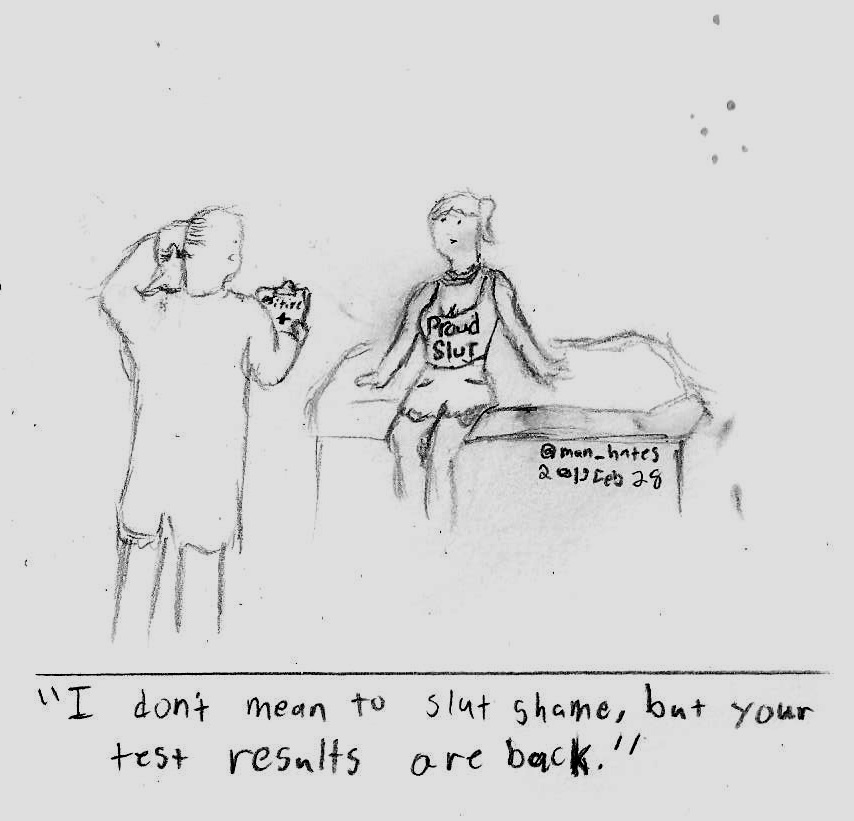 +
Proud
Slut
@man_hates
Feb 28
"I don't mean to slut shame, but your
test results are back."